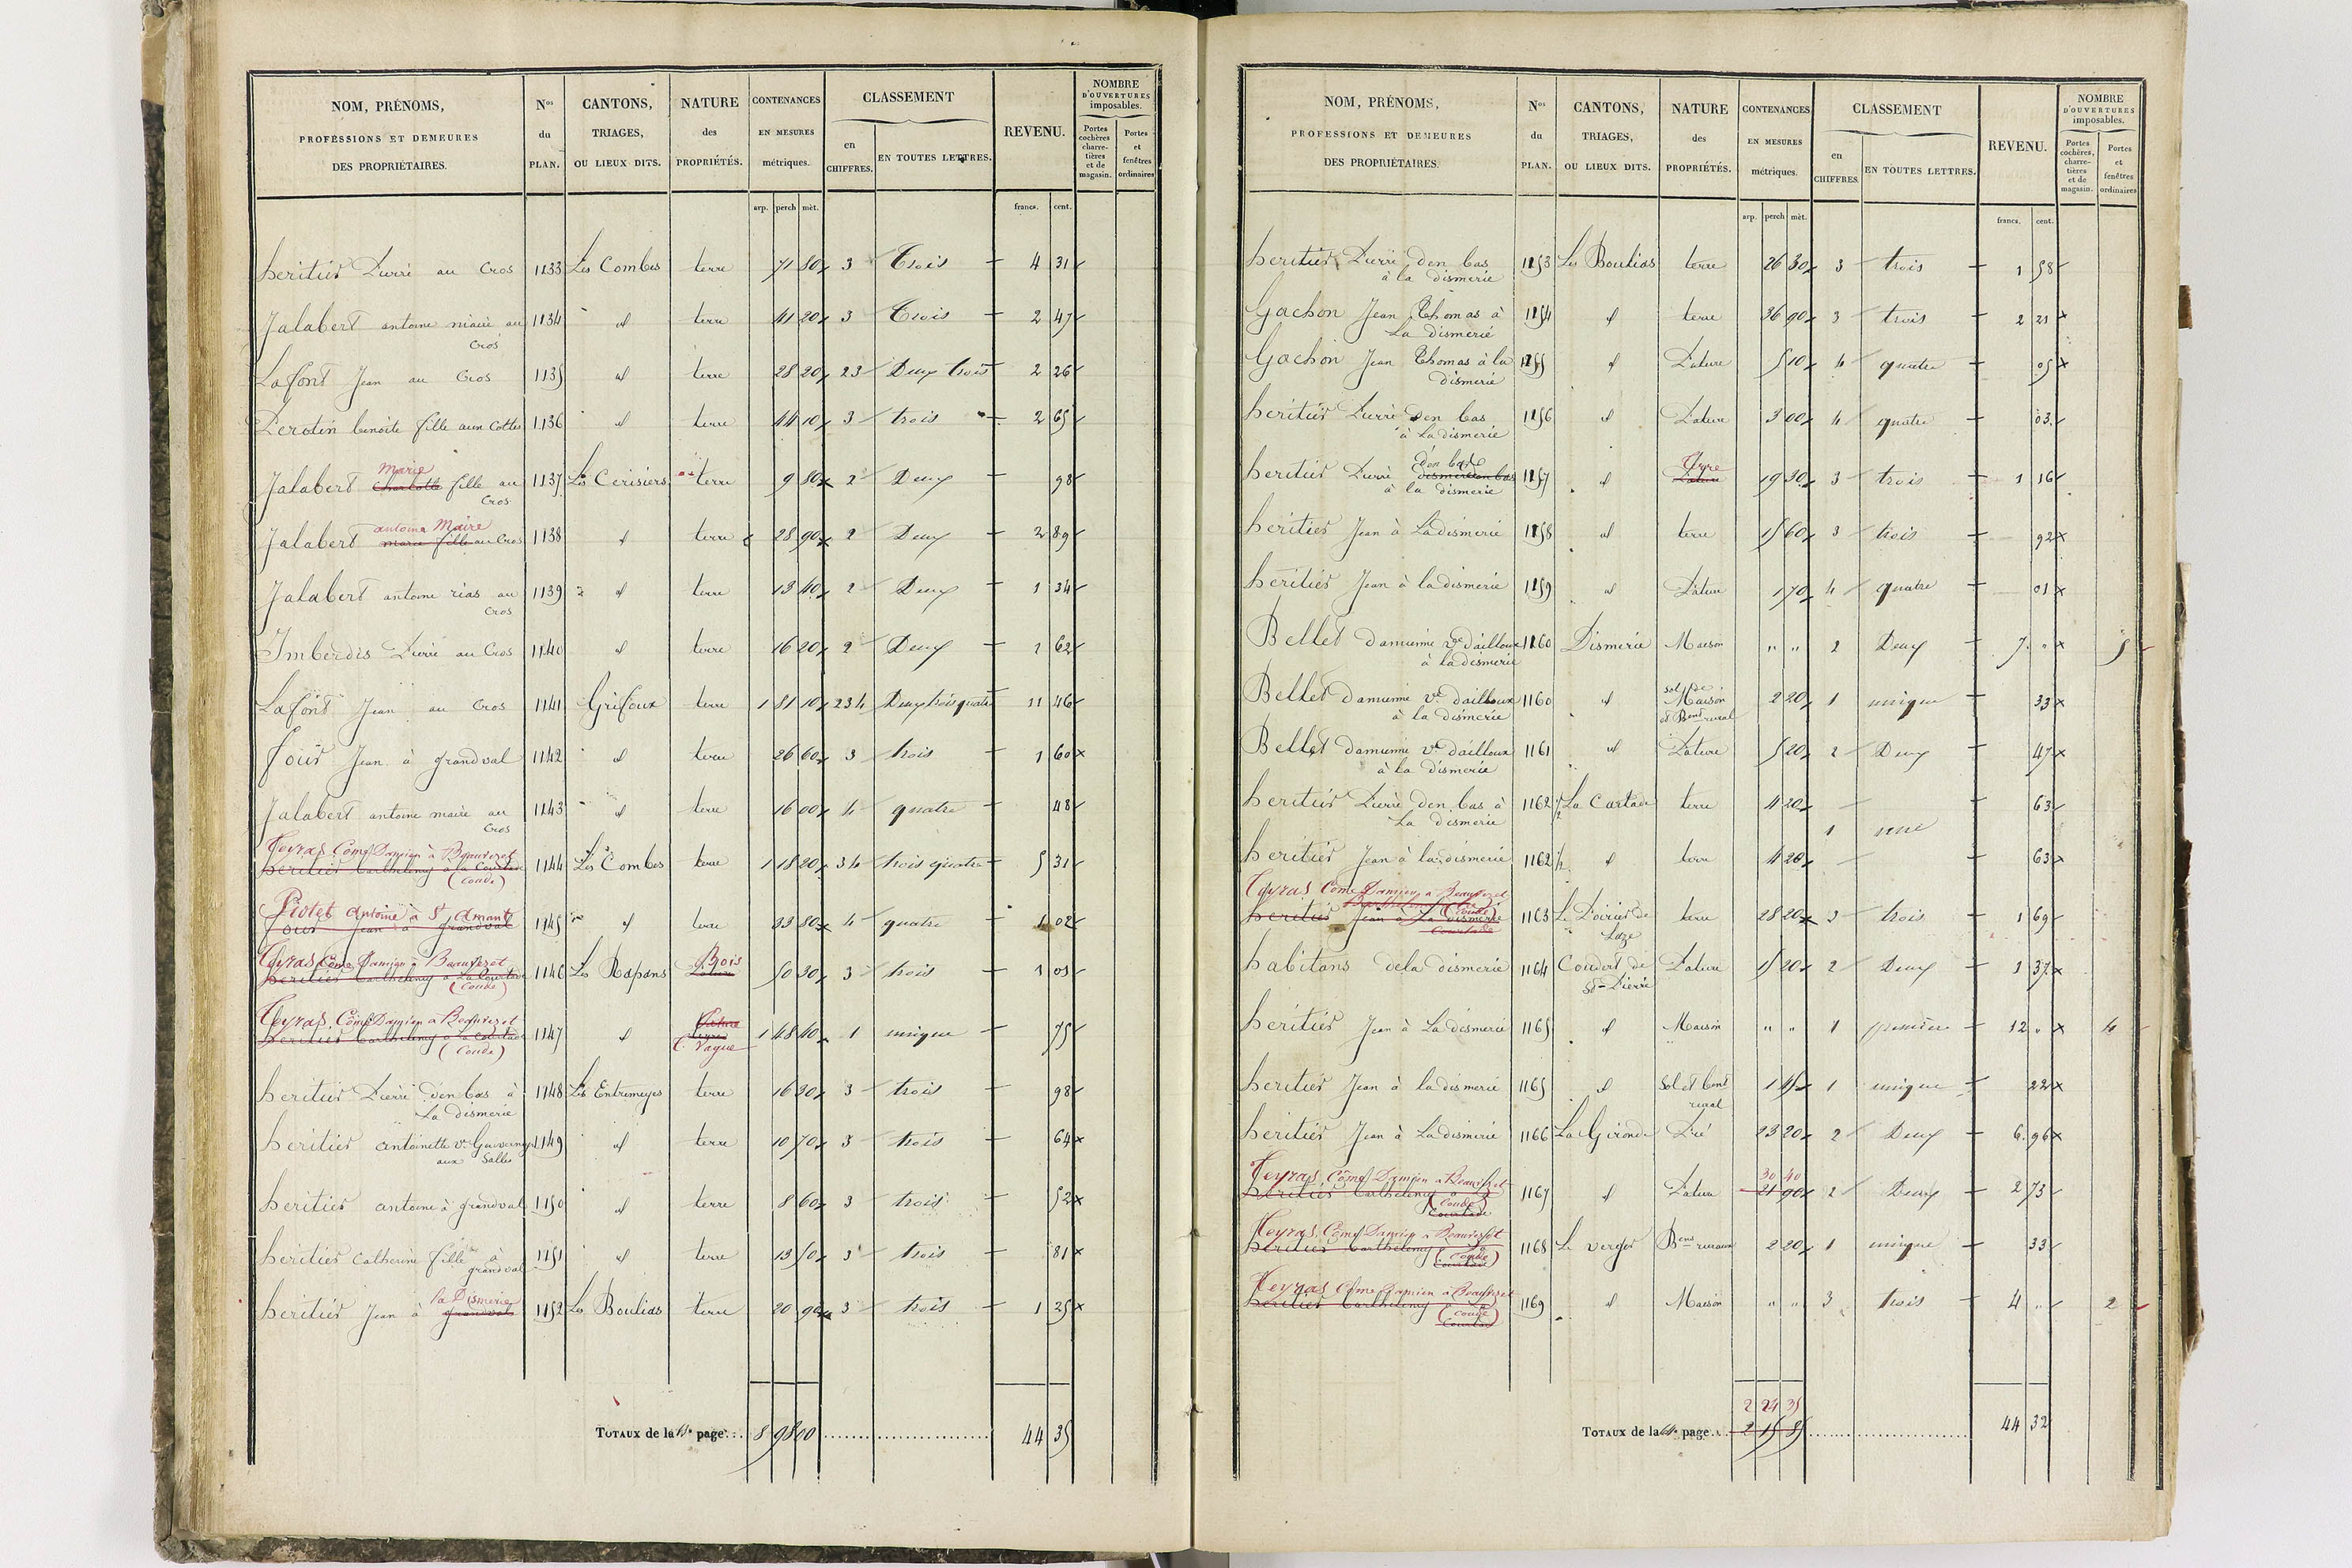 NOM, PRÉNOMS, PROFESSIONS ET DEMEURES DES PROPRIÉTAIRES. Nos du PLAN. CANTONS, TRIAGES, OU LIEUX DITS. NATURE des PROPRIÉTÉS. CONTENANCES EN MESURES métriques. CLASSEMENT en CHIFFRES. EN TOUTES LETTRES. REVENU. NOMBRE D'OUVERTURES imposables. Portes cochères, charretières et de magasin. Portes et fenêtres ordinaires
arp. perch mèt. francs. cent.
heritier Pierre au Cros 1133 Les Combes terre 71 80 3 Trois 4 31
Jalabert antoine maire au Cros 1134 id terre 41 20 3 Trois 2 47
Lafont Jean au Cros 1135 id terre 28 20 23 Deux trois 2 26
Perotin benoite fille aux Cottes 1136 id terre 44 10 3 trois 2 65
Jalabert Marie Charlotte fille au Cros 1137 Les Cerisiers terre 9 80 2 Deux 98
Jalabert antoine Maire marie fille au Cros 1138 id terre 28 90 2 Deux 2 89
Jalabert antoine rias au Cros 1139 id terre 13 40 2 Deux 1 34
Imberdis Pierre au Cros 1140 id terre 16 20 2 Deux 1 62
Lafont Jean au Cros 1141 Grifoux terre 1 81 10 234 Deux trois quatre 11 46
four Jean à grandval 1142 id terre 26 60 3 trois 1 60
Jalabert antoine maire au Cros 1143 id terre 16 00 4 quatre 48
Teyras Come Damien à Beauvezet (Coude)
heritier barthelemy à la Courtade 1144 Les Combes terre 1 18 20 34 trois quatre 5 31
Piotet Antoine à St Amant
four Jean à grandval 1145 id terre 33 80 4 quatre 1 02
Teyras Come Damien à Beauvezet (Coude)
heritier barthelemy à la Courtade 1146 Les Rapans Bois Pature 50 30 3 trois 1 01
Teyras Come Damien à Beauvezet (Coude)
heritier barthelemy à la Courtade 1147 id Pature T. Vague 1 48 40 1 unique 75
heritier Pierre d'en bas à La dismerie 1148 Les Entremeyes terre 16 30 3 trois 98
heritier antoinette ve aux Salles 1149 id terre 10 70 3 trois 64
heritier antoine à grandval 1150 id terre 8 60 3 trois 52
heritier Catherine fille à grandval 1151 id terre 13 50 3 trois 81
heritier Jean à la Dismerie grandval 1152 Les Boulias terre 20 90 3 trois 1 25
TOTAUX de la page... 8 98 00 44 35
NOM, PRÉNOMS, PROFESSIONS ET DEMEURES DES PROPRIÉTAIRES. Nos du PLAN. CANTONS, TRIAGES, OU LIEUX DITS. NATURE des PROPRIÉTÉS. CONTENANCES EN MESURES métriques. CLASSEMENT en CHIFFRES. EN TOUTES LETTRES. REVENU. NOMBRE D'OUVERTURES imposables. Portes cochères, charretières et de magasin. Portes et fenêtres ordinaires
arp. perch mèt. francs. cent.
heritier Pierre d'en bas à la dismerie 1153 Les Boulias terre 26 30 3 trois 1 58
Gachon Jean Thomas à La dismerie 1154 id terre 36 90 3 trois 2 21
Gachon Jean Thomas à la dismerie 1155 id Pature 5 10 4 quatre 05
heritier Pierre d'en bas à La dismerie 1156 id Pature 3 00 4 quatre 03
heritier Pierre d'en bas à la dismerie 1157 id Tyre Pature 19 30 3 trois 1 16
heritier Jean à La dismerie 1158 id terre 15 60 3 trois 92
heritier Jean à la dismerie 1159 id Pature 1 70 4 quatre 01
Bellet damienne ve dailloux à la dismerie 1160 Dismerie Maison " " 2 Deux 7 " 5
Bellet damienne ve dailloux à la dismerie 1160 id sol de Maison et Bent rural 2 20 1 unique 33
Bellet damienne ve dailloux à la dismerie 1161 id Pature 5 20 2 Deux 47
heritier Pierre d'en bas à La dismerie 1162 1/2 La Cartade terre 4 20 63
1 une
heritier Jean à la dismerie 1162 1/2 id terre 4 20 63
Teyras Come Damien à Beauvezet (Coude)
heritier Jean à La dismerie Courtade 1163 Le Poirier de Laze terre 28 20 3 trois 1 69
habitans de la dismerie 1164 Coudert de St-Pierre Pature 15 20 2 Deux 1 37
heritier Jean à La dismerie 1165 id Maison " " 1 première 12 " 4
heritier Jean à la dismerie 1165 id Sol et bent rural 1 45 1 unique 22
heritier Jean à La dismerie 1166 La Gironde Pré 23 20 2 Deux 6 96
Teyras Come Damien à Beauvezet (Coude)
heritier barthelemy à Courtade 1167 id Pature 30 40 21 90 2 Deux 2 73
Teyras Come Damien à Beauvezet (Coude)
heritier barthelemy à Courtade 1168 Le verger Bens ruraux 2 20 1 unique 33
Teyras Come Damien à Beauvezet (Coude)
heritier barthelemy Courtade 1169 id Maison " " 3 trois 4 " 2
2 24 35
TOTAUX de la page... 2 15 85 44 32